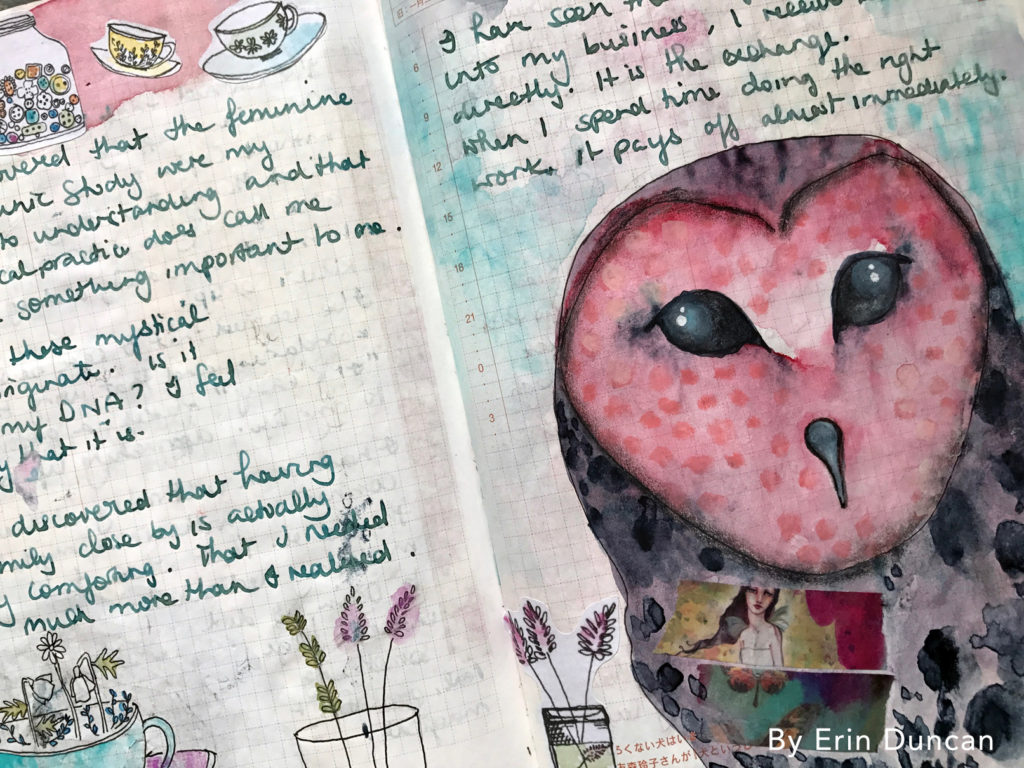 overed that the feminine
unic study were my
to understanding and that
cal practic does call me
something important to me.
those mystical
riginate. is it
my DNA? I feel
y that it is.
discovered that having
mily close by is actually
y comforting. That I needed
much more than I realized.
I have seen
into my business, I receive
directly. It is the exchange.
when I spend time doing the right
work, it pays off almost immediately.
6
9
12
15
18
21
0
3
ろくない犬はい
By Erin Duncan